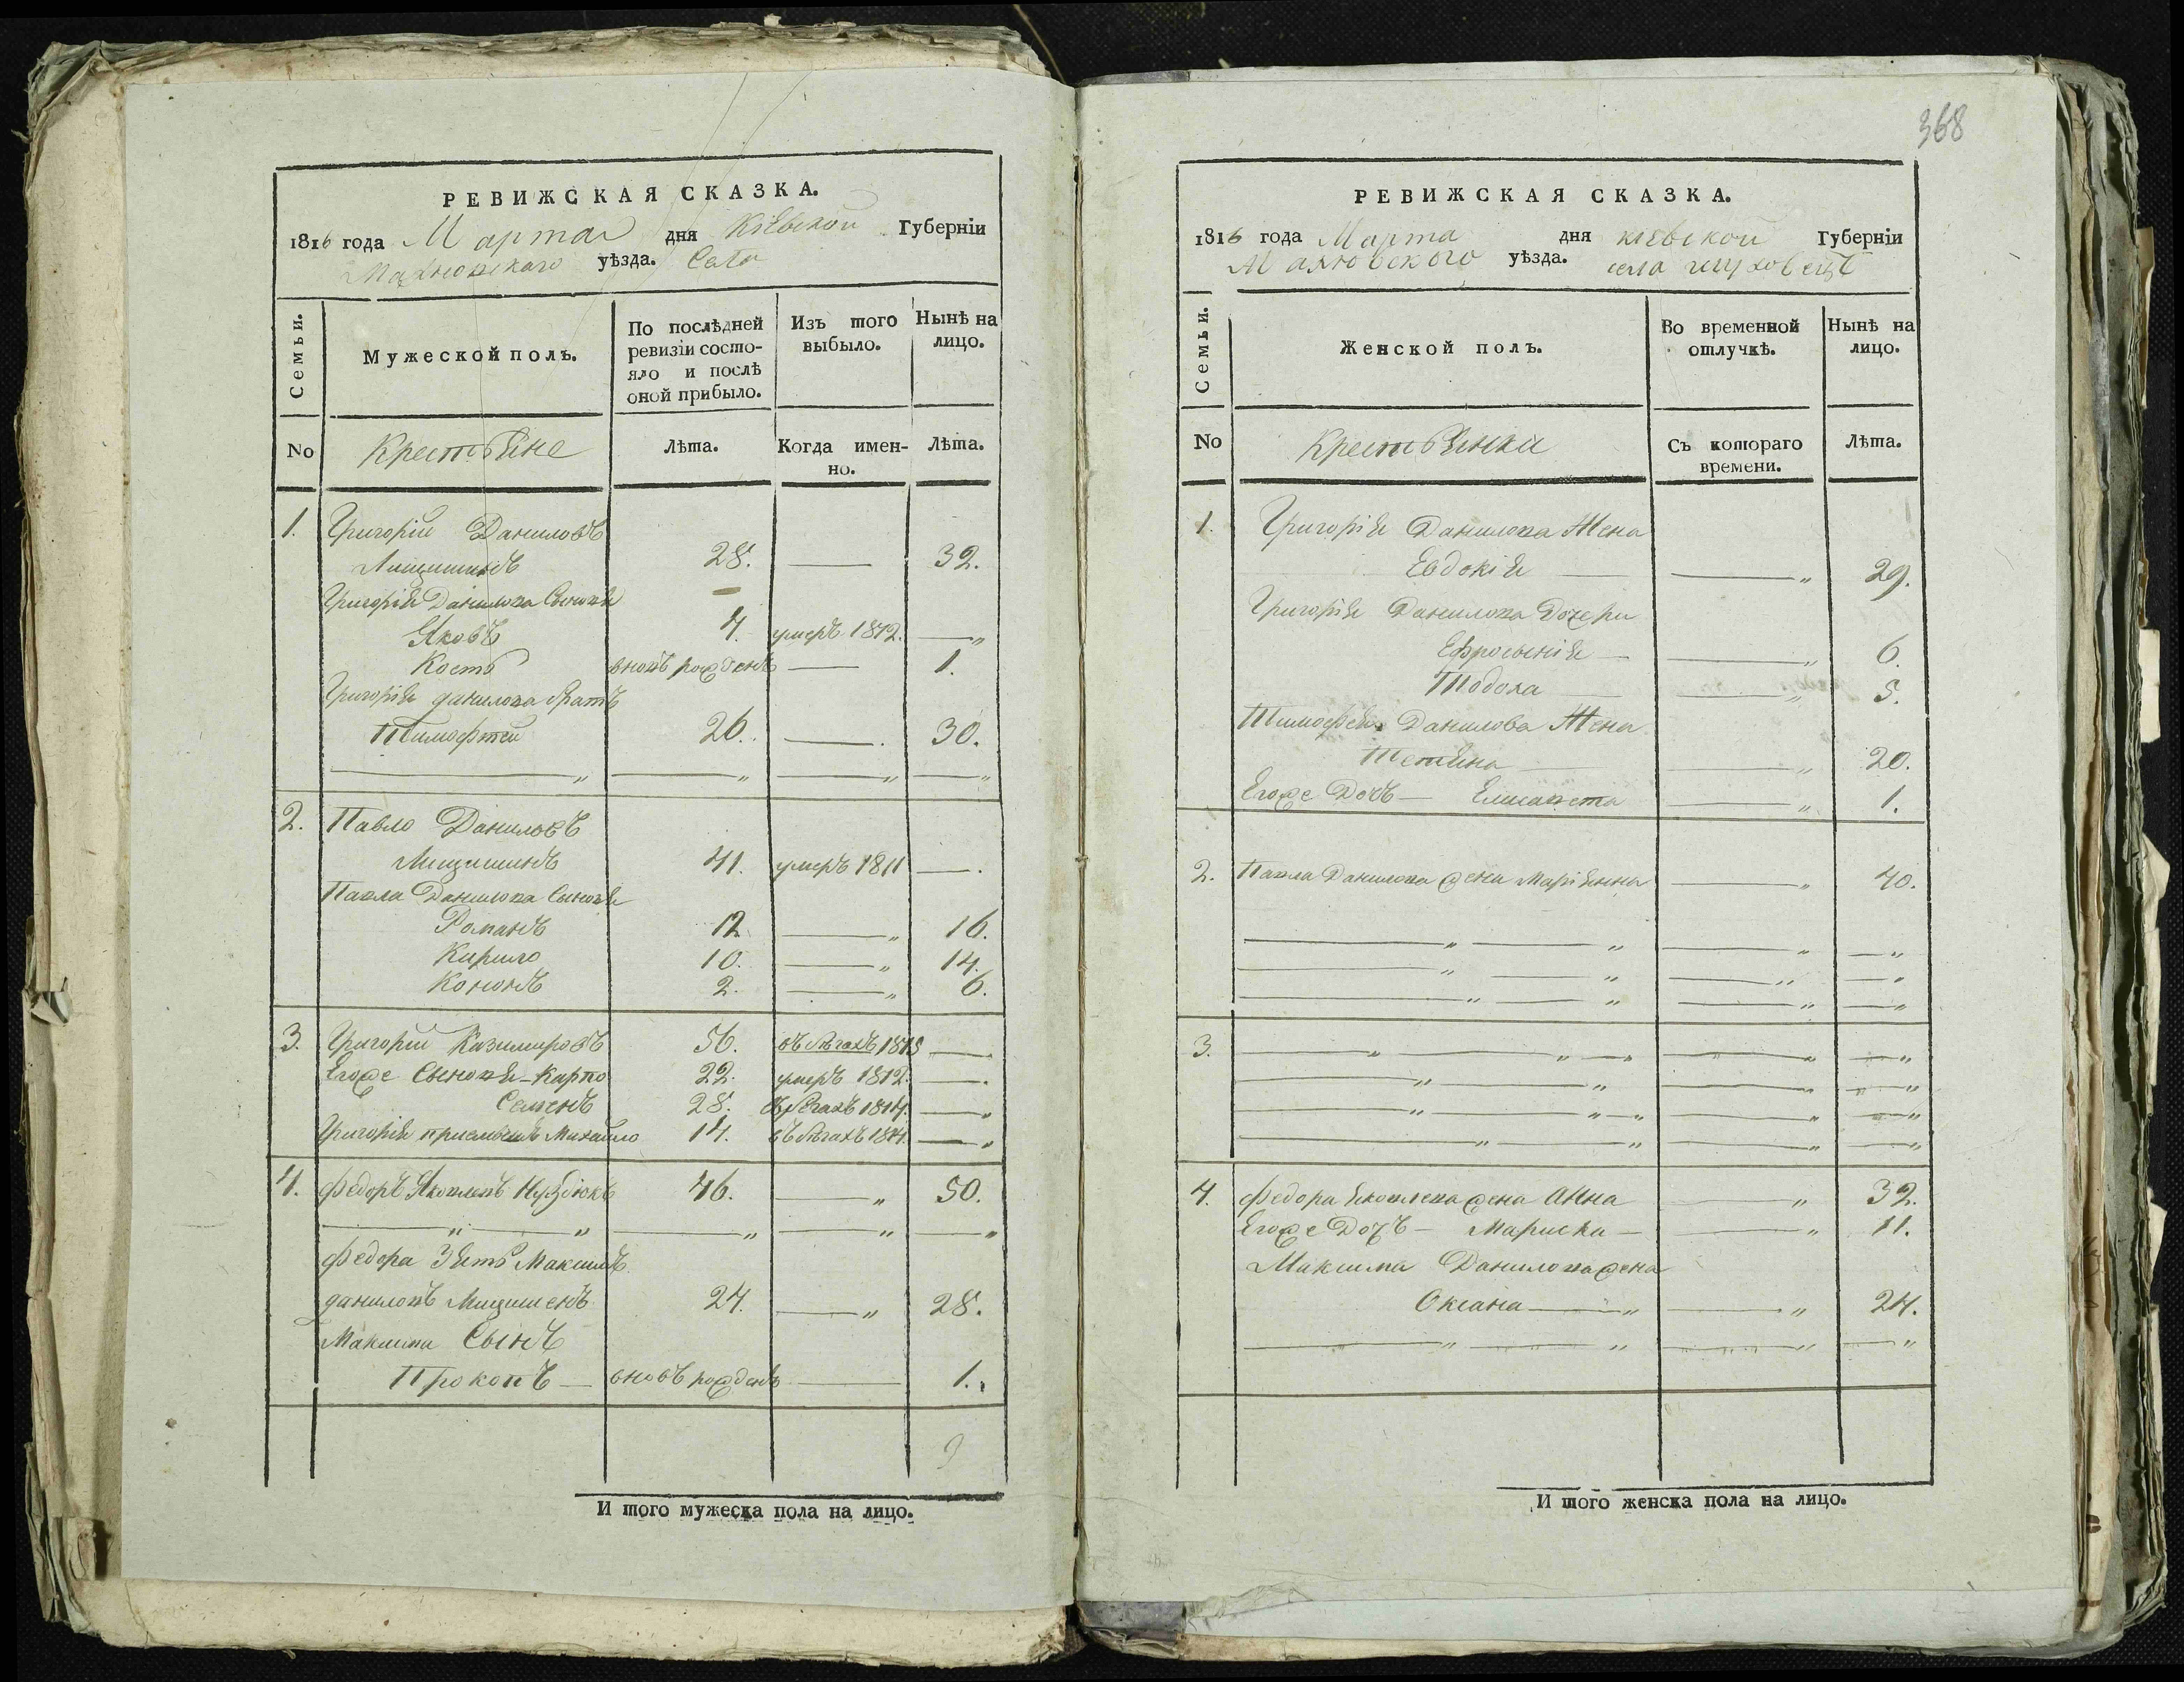 368
РЕВИЖСКАЯ СКАЗКА.
1816 года Марта дня Кіевской Губерніи
Махновского уѣзда. Села
Семьи. Мужеской полъ. По послѣдней ревизіи состо-яло и послѣ оной прибыло. Изъ того выбыло. Нынѣ на лицо.
No Крестьяне Лѣта. Когда имен-но. Лѣта.
1. Григорій Даниловъ
Лищишинъ 28. — 32.
Григорія Данилова Сыновья
Яковъ 4. умеръ 1812. — „
Кость вновь рожденъ — 1.
Григорія данилова братъ
Тимофтей 26. — 30.
— „ — „ — „ — „
2. Павло Даниловъ
Лищишинъ 41. умеръ 1811 —.
Павла Данилова Сыновья
Романъ 12. — „ 16.
Кирило 10. — „ 14.
Кононъ 2. — „ 6.
3. Григорій Казимировъ 56. въ бѣгахъ 1813 —
Егоже Сыновья - Карпо 22. умеръ 1812. —.
Семенъ 28. въ бѣгахъ 1814. — „
Григорія приемышъ Михайло 14. въ бѣгахъ 1814. — „
4. Федоръ Яковлевъ 46. — „ 50.
— „ — „ — „ — „ — „
Федора Зять Максимъ
даниловъ Мищишенъ 24. — „ 28.
Максима Сынъ
Прокопъ — вновь рожденъ — 1.
9
И того мужеска пола на лицо.
РЕВИЖСКАЯ СКАЗКА.
1816 года Марта дня кіевской Губерніи
Махновского уѣзда. села
Семьи. Женской полъ. Во временной отлучкѣ. Нынѣ на лицо.
No Крестьянки Съ котораго времени. Лѣта.
1. Григорія Данилова Жена
Евдокія — — „ 29.
Григорія Данилова Дочери
Ефросынія — — „ 6.
Тодоха — — „ 5.
Тимофея Данилова Жена
Тетяна — — „ 20.
Егоже Дочь — Елисавета — „ 1.
2. Павла Данилова жена Маріянна — „ 40.
— „ — „ — „ — „
— „ — „ — „ — „
— „ — „ — „ — „
3. — „ — „ — „ — „ — „
— „ — „ — „ — „
— „ — „ — „ — „ — „
— „ — „ — „ — „
4. Федора Яковлева жена Анна — „ 32.
Егоже Дочь — Мариска — — „ 11.
Максима Данилова жена
Оксана — „ — „ 24.
— „ — „ — „ — „
И того женска пола на лицо.